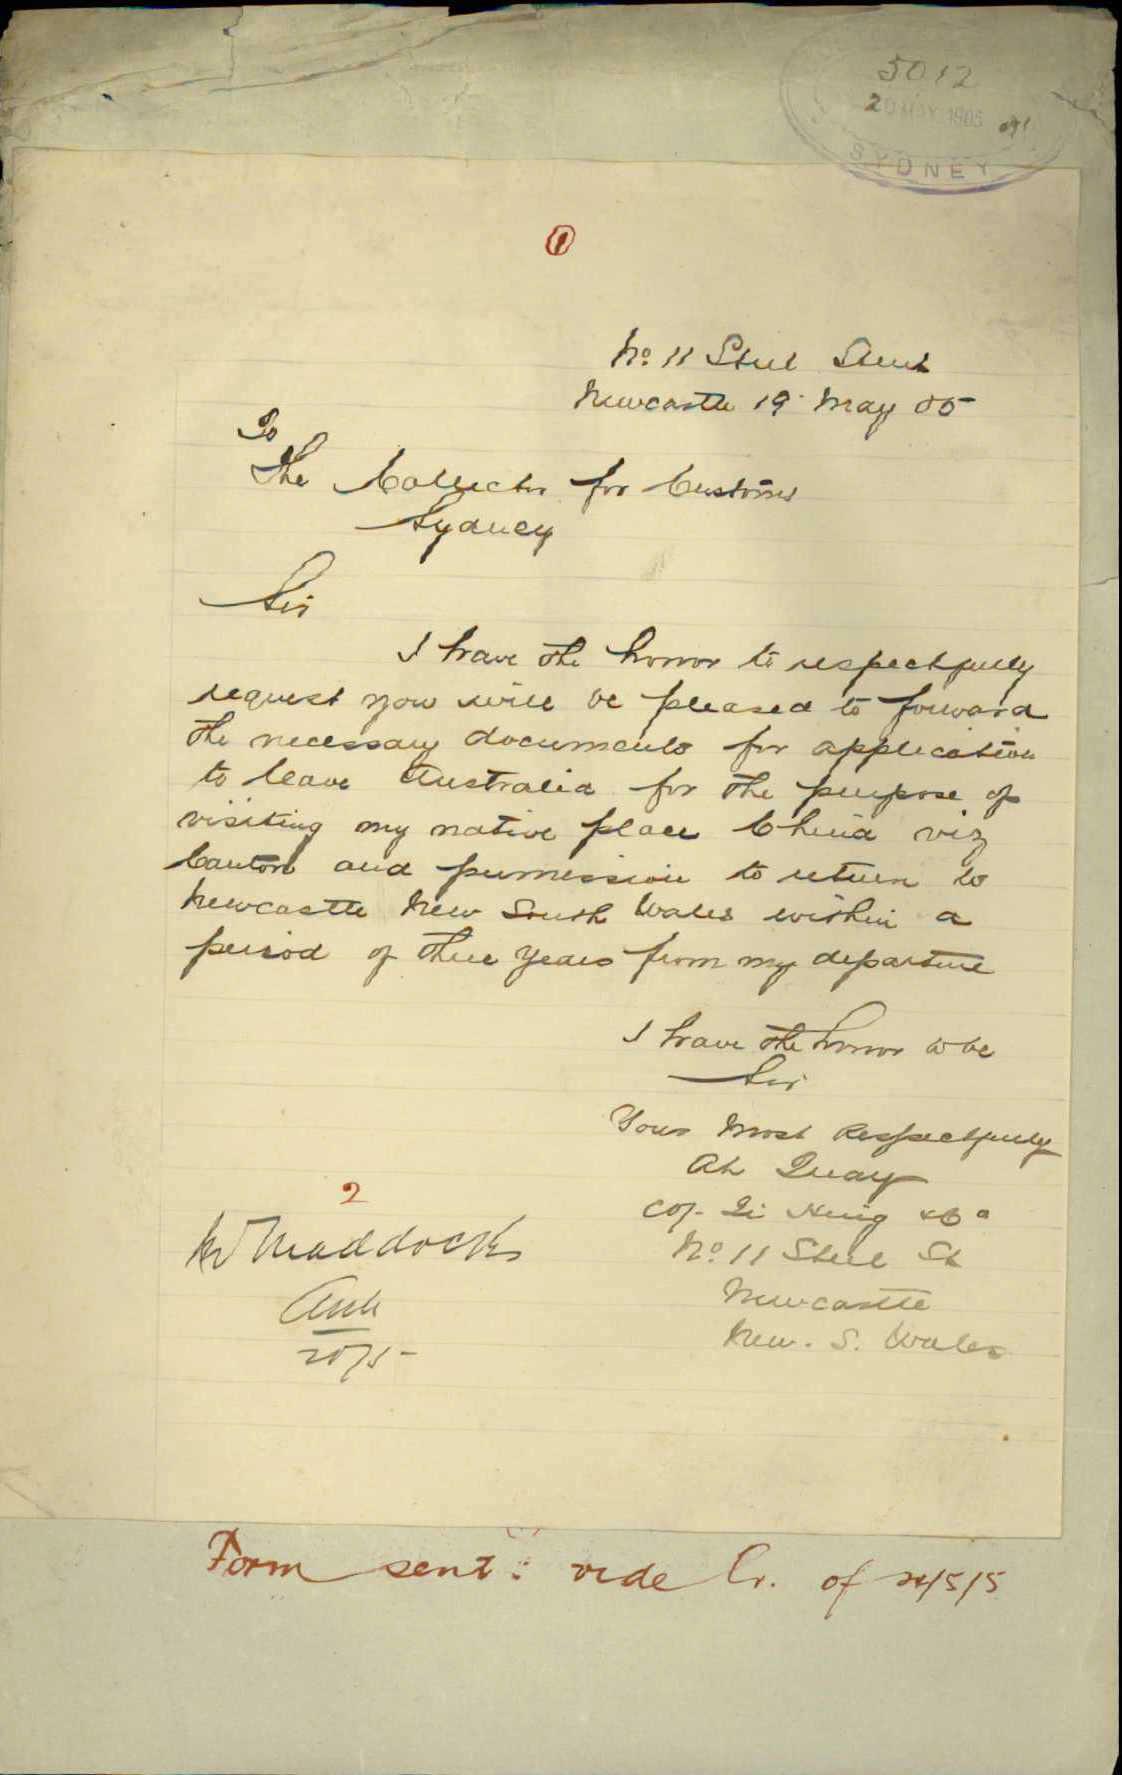 5012
20 MAY 1905
SYDNEY
1
No. 11 Steel Street
Newcastle 19 May 05
To
The Collector for Customs
Sydney
Sir
I have the honor to respectfully
request you will be pleased to forward
the necessary documents for application
to leave Australia for the purpose of
visiting my native place China viz
Canton and permission to return to
Newcastle New South Wales within a
period of three years from my departure
I have the honor to be
Sir
Yours Most Respectfully
Ah Quay
No. 11 Steel St
Newcastle
New. S. Wales
2
Mr Maddocks
20/5
Form sent: vide Cr. of /5/5